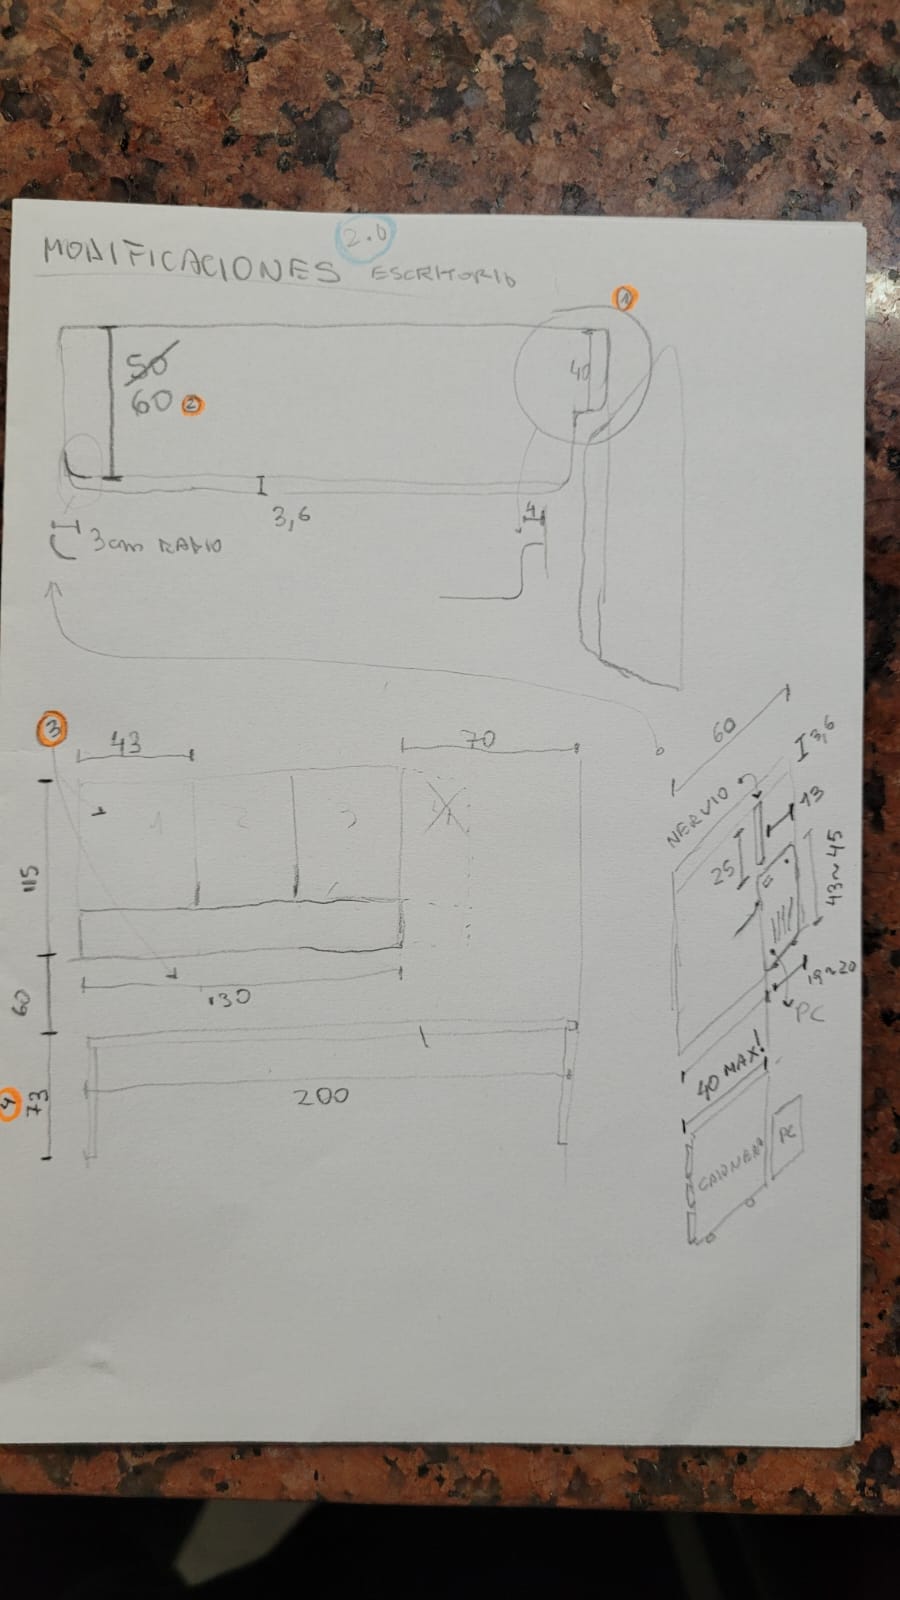 MODIFICACIONES 2.0 ESCRITORIO
1
50
60 2
40
3,6
4
3cm RADIO
3
43
70
1 2 3 4
115
130
60
200
4
73
60
3,6
NERVIO
13
25
43~45
19~20
PC
40 MAX!
CAJONERA
PC